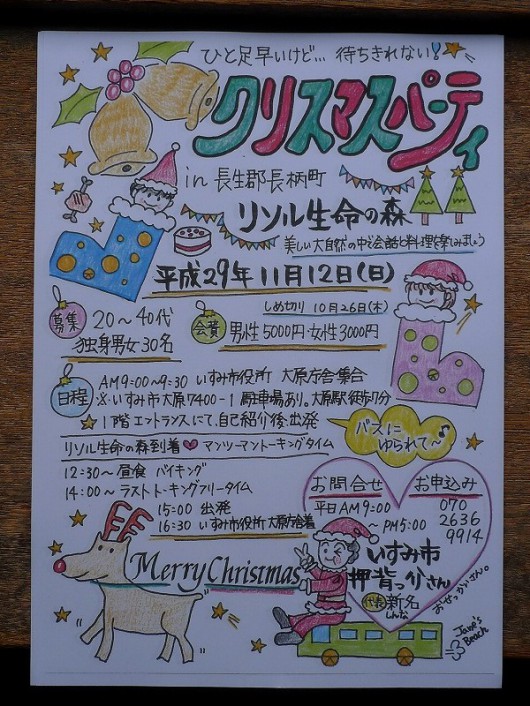 ひと足早いけど… 待ちきれない!
クリスマスパーティ
in 長生郡長柄町
リソル生命の森
美しい大自然の中で会話と料理を楽しみましょう
平成29年11月12日(日)
しめ切り 10月26日(木)
募集 20〜40代
独身男女30名
会費 男性5000円・女性3000円
日程 AM9:00〜9:30 いすみ市役所 大原庁舎集合
※いすみ市大原7400-1 駐車場あり。大原駅徒歩7分
1階エントランスにて、自己紹介後、出発
バスにゆられて〜♪
リソル生命の森到着♥マンツーマントーキングタイム
12:30〜昼食 バイキング
14:00〜ラストトーキングフリータイム
15:00 出発
16:30 いすみ市役所大原庁舎着
お問合せ お申込み
平日AM9:00
〜PM5:00
070
2636
9914
いすみ市
押背っかさん
おせっかいさん。
代表 新名
しんな
Merry Christmas
Jane's
Beach